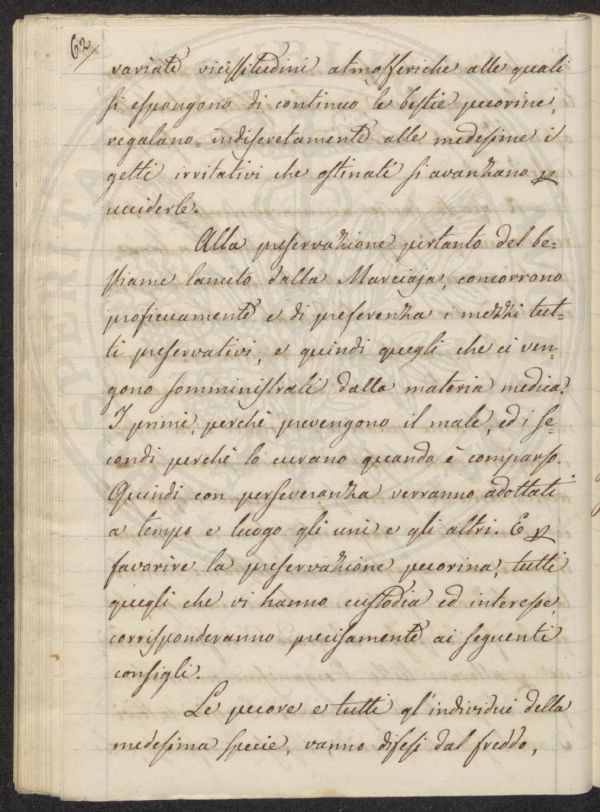 62
variate vicissitudini atmosferiche alle quali
si espongono di continuo le bestie pecorine,
regalano indiscretamente alle medesime i
getti irritativi che ostinati si avanzano p
ucciderle.
Alla preservazione pertanto del be=
stiame lanuto dalla Marciaja, concorrono
proficuamente e di preferenza i mezzi tut=
ti preservativi, e quindi quegli che ci ven=
gono somministrati dalla materia medica.
I primi, perchè prevengono il male, ed i se=
condi perchè lo curano quando è comparso.
Quindi con perseveranza verranno adottati
a tempo e luogo gli uni e gli altri. E p
favorire la preservazione pecorina, tutti
quegli che vi hanno custodia ed interesse,
corrisponderanno precisamente ai seguenti
consigli.
Le pecore e tutti gl'individui della
medesima specie, vanno difesi dal freddo,